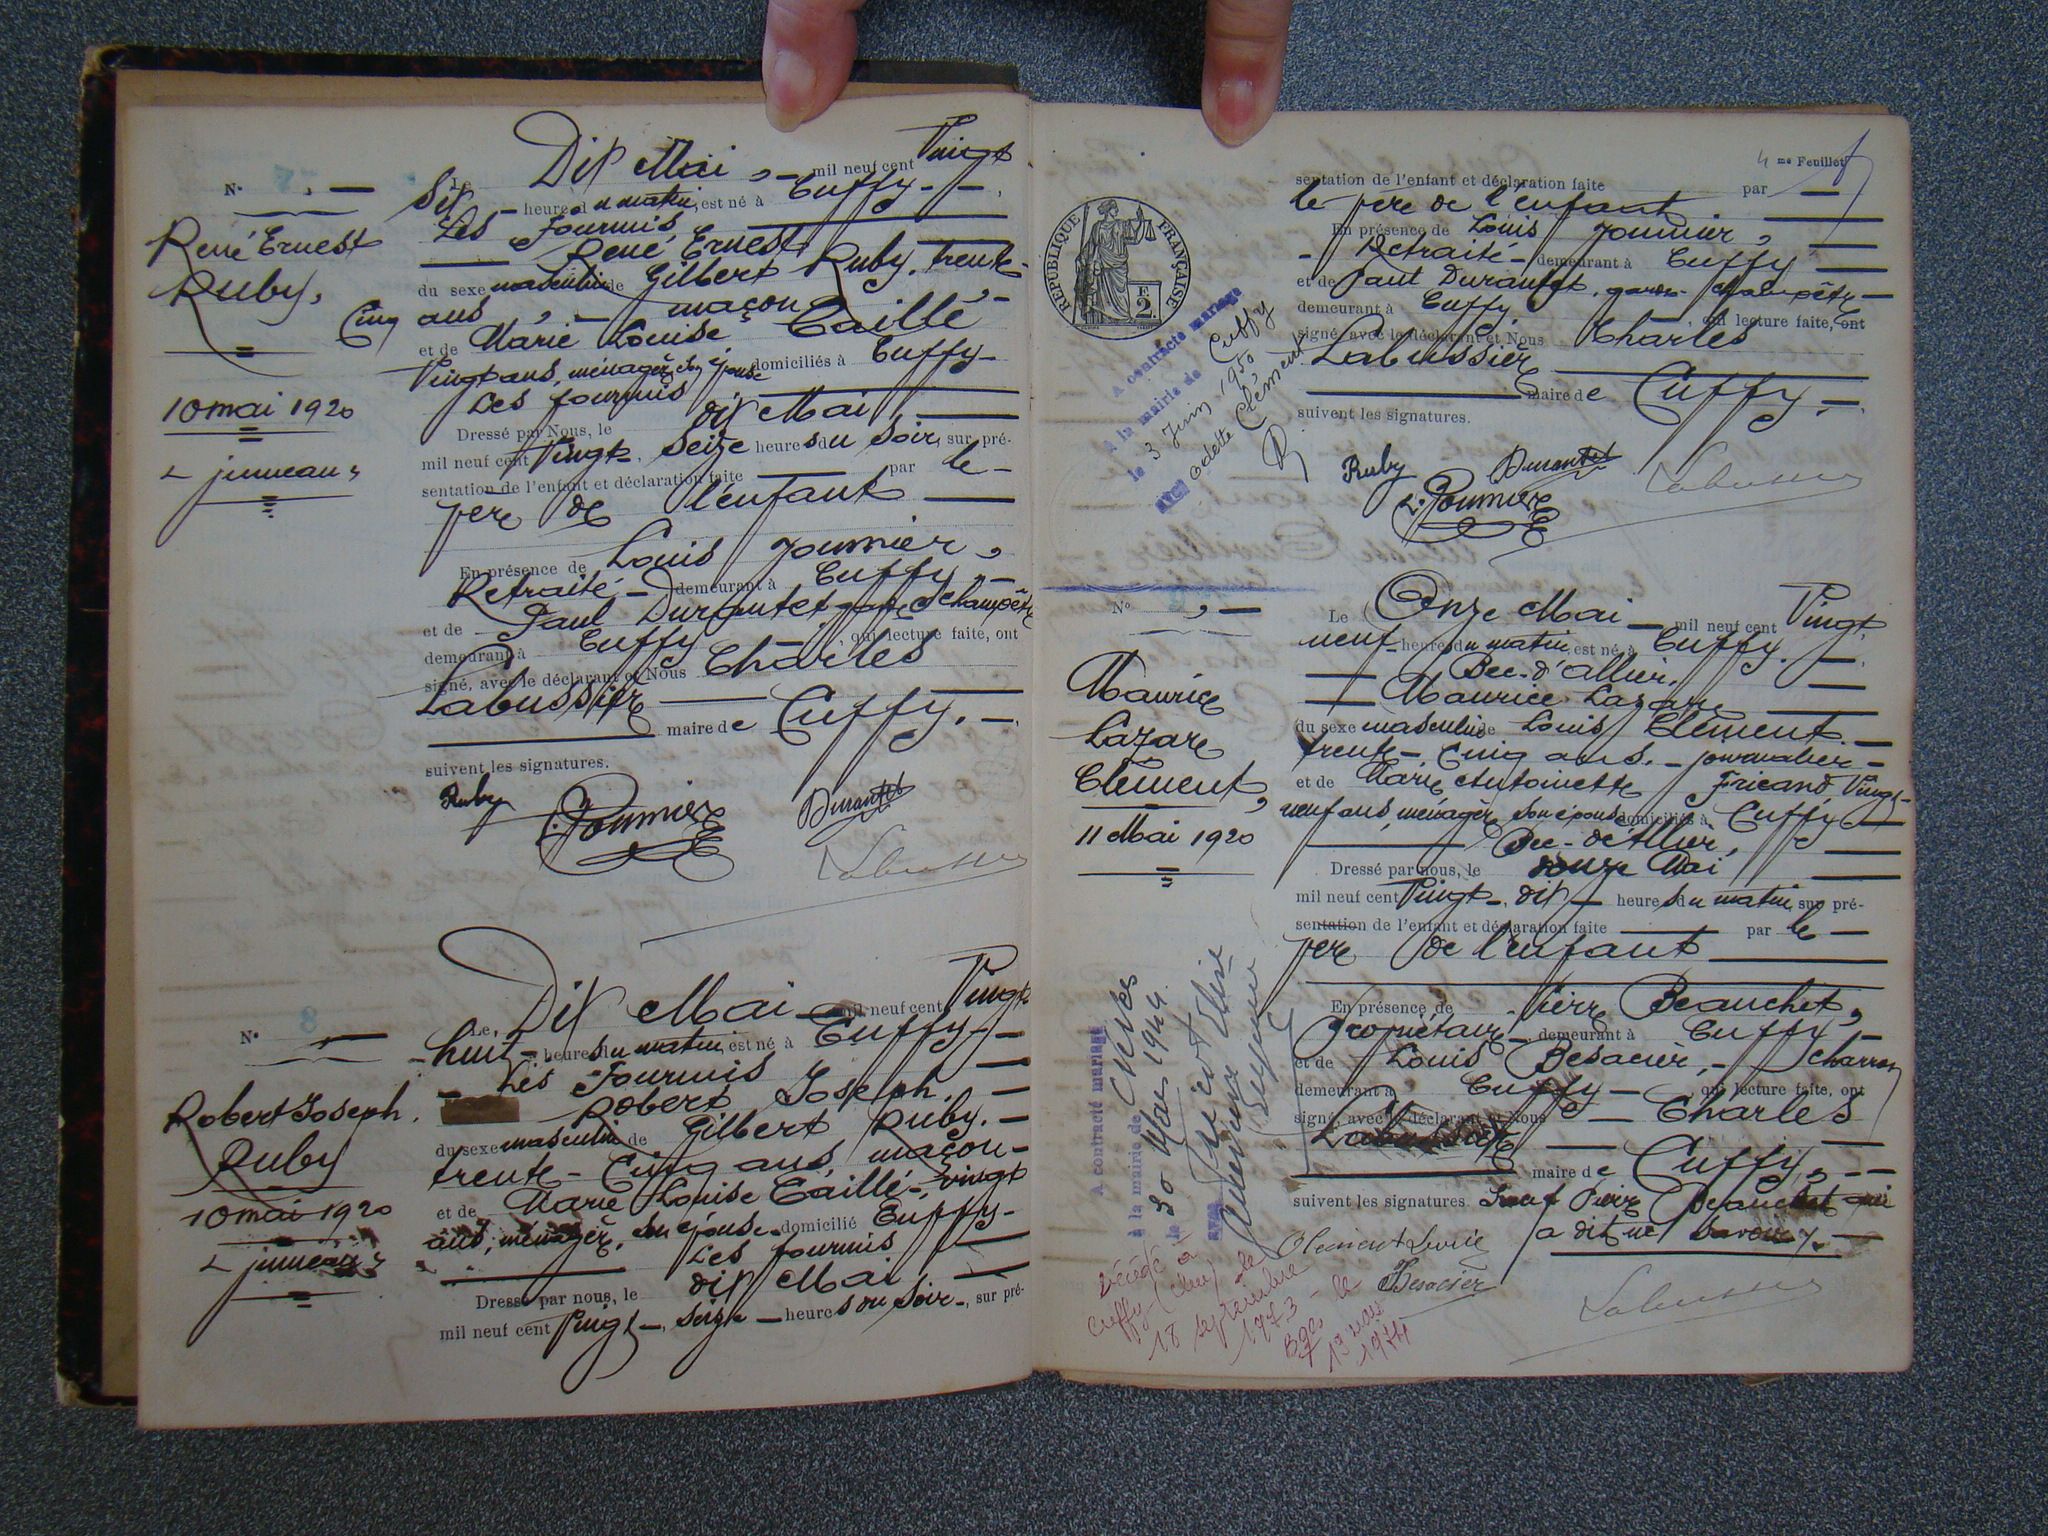 N° , —
René Ernest
Ruby,
10 mai 1920
« jumeau »
Le Dix Mai, — mil neuf cent Vingt
Six heure du matin, est né à Cuffy —
Les Fourmis
René Ernest
du sexe masculin de Gilbert Ruby, trente-
Cinq ans, — maçon, —
et de Marie Louise Caillé
Vingt ans, ménagère, son épouse domiciliés à Cuffy —
Les fourmis
Dressé par Nous, le dix Mai, —
mil neuf cent Vingt, seize heures du soir, sur pré-
sentation de l'enfant et déclaration faite — par le —
père de l'enfant —
En présence de Louis Poumier,
Retraité — demeurant à Cuffy, —
et de Paul Durantet garde champêtre
demeurant à Cuffy —, qui lecture faite, ont
signé, avec le déclarant et Nous Charles
Labussière —
maire de Cuffy. —
suivent les signatures.
Ruby L. Poumier Durantet
Labussière
N° 8
Robert Joseph
Ruby
10 mai 1920
« jumeau »
Le, Dix Mai — mil neuf cent Vingt
huit — heures du matin, est né à Cuffy —
— Les Fourmis —
Robert Joseph. —
du sexe masculin de Gilbert Ruby. —
trente — Cinq ans, maçon —
et de Marie Louise Caillé —, vingt
ans, ménagère, son épouse — domicilié Cuffy —
Les fourmis —
Dressé par nous, le dix Mai —
mil neuf cent Vingt —, seize — heures du soir —, sur pré-
4 me Feuillet
sentation de l'enfant et déclaration faite par —
le père de l'enfant —
En présence de Louis Poumier,
- Retraité — demeurant à Cuffy —
et de Paul Durantet, garde champêtre —
demeurant à Cuffy, qui lecture faite, ont
signé avec le déclarant et Nous Charles
Labussière
maire de Cuffy, —
suivent les signatures.
Ruby Durantet
L. Poumier Labussière
REPUBLIQUE FRANÇAISE
F
2.
A contracté mariage
à la mairie de Cuffy
le 3 Juin 1950
avec Odette Clément
N° , —
Maurice
Lazare
Clément,
11 Mai 1920
Le Onze Mai — mil neuf cent Vingt
neuf — heures du matin, est né à Cuffy. —
— Bec-d'Allier, —
— Maurice Lazare —
du sexe masculin de Louis Clément. —
trente — Cinq ans. — journalier —
et de Marie Antoinette Fricand, Vingt-
neuf ans, ménagère, son épouse domiciliés à Cuffy —
— Bec-de'Allier, —
Dressé par nous, le douze Mai
mil neuf cent Vingt —, dix — heures du matin, sur pré-
sentation de l'enfant et déclaration faite — par le —
père de l'enfant —
En présence de Pierre Beauchet,
Propriétaire —, demeurant à Cuffy —
et de Louis Besacier, — charron
demeurant à Cuffy — qui lecture faite, ont
signé, avec le déclarant et Nous — Charles
Labussière —
maire de Cuffy, — —
suivent les signatures. Sauf Pierre Beauchet qui
a dit ne savoir. —
Clément Louis
Besacier
Labussière
A contracté mariage
à la mairie de
le 20 Mai 1944
avec
Décédé à
Cuffy (Cher) le
18 septembre
1973 — le
13 mai
1974